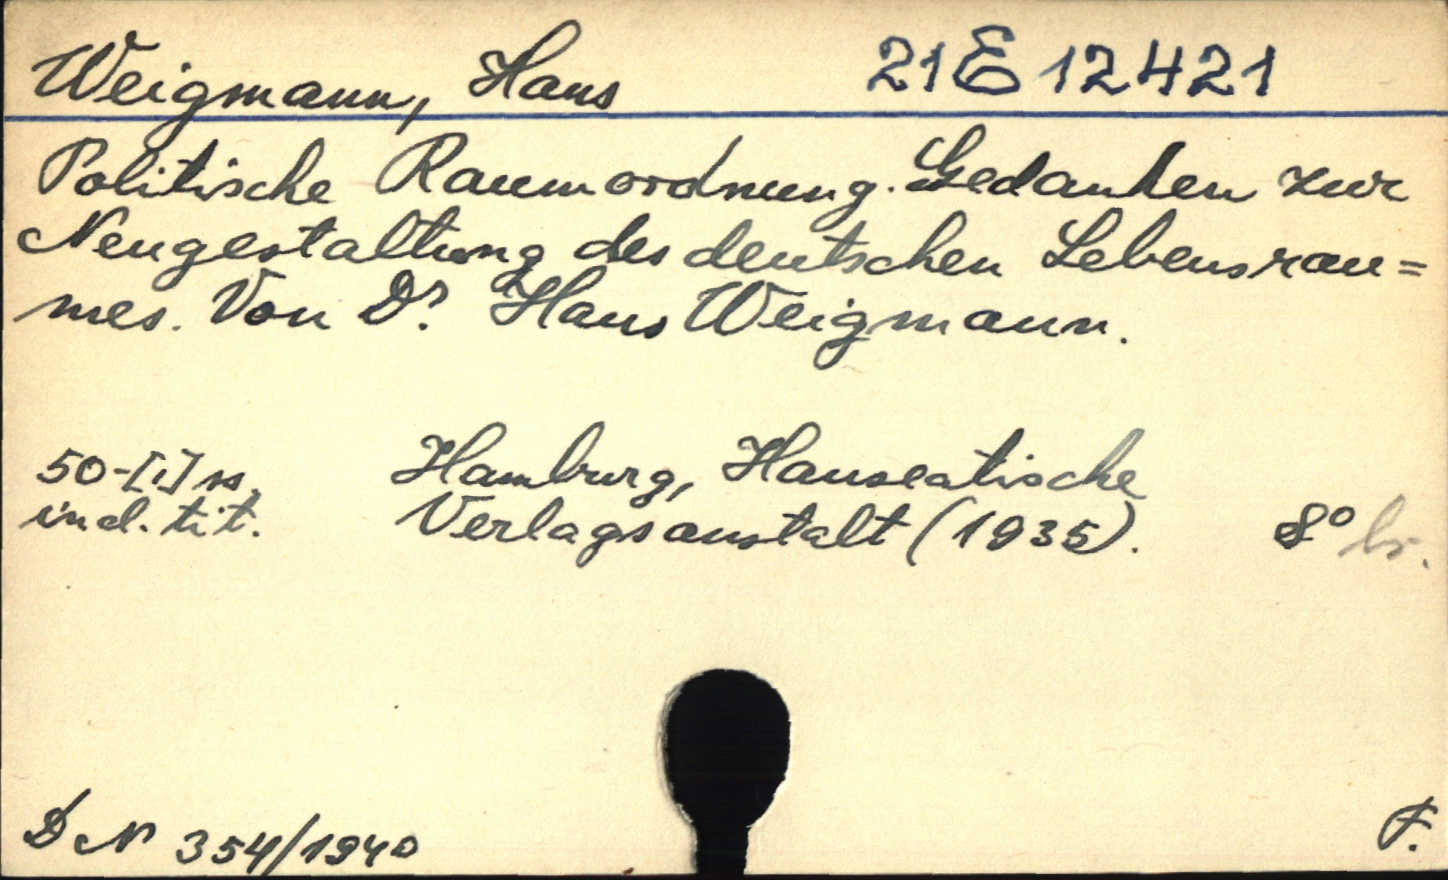 Weigmann, Hans 21 E 12421
Politische Raumordnung. Gedanken zur
Neugestaltung des deutschen Lebensrau=
mes. Von Dr. Hans Weigmann.
50-[1] ss. Hamburg, Hanseatische
incl. tit. Verlagsanstalt (1935). 8° br.
DN 354/1940 F.